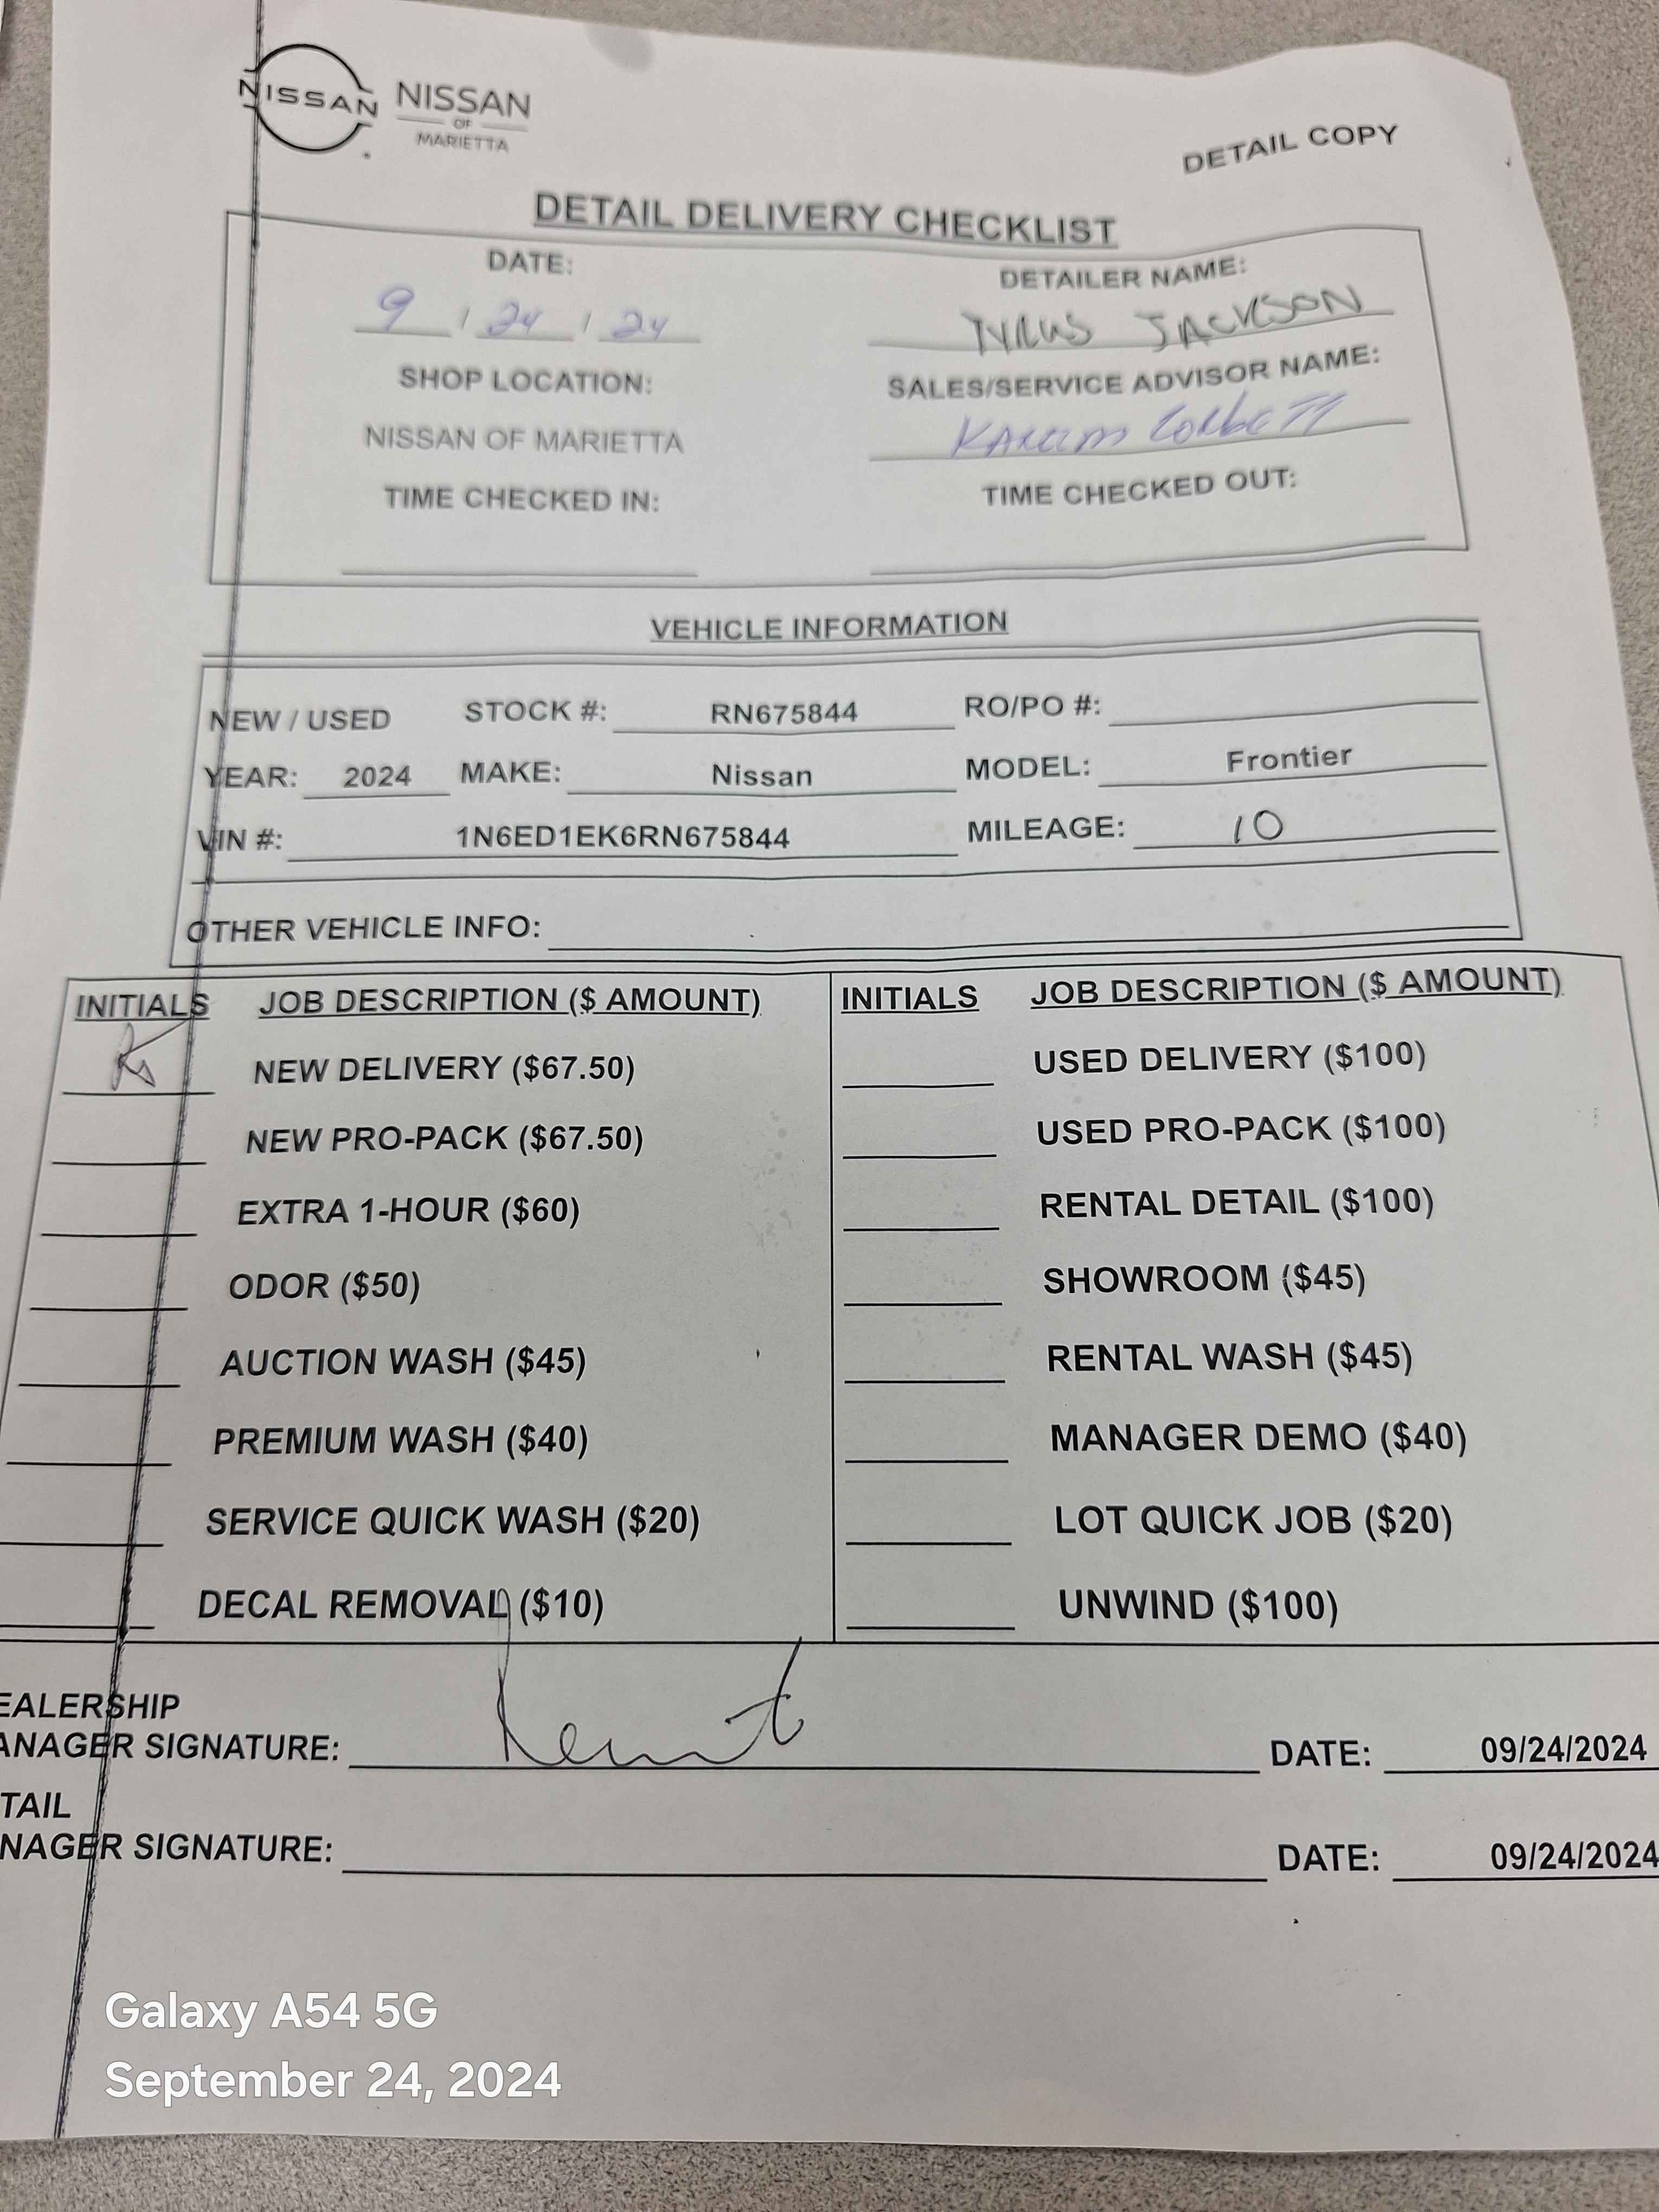 NISSAN
NISSAN
OF
MARIETTA
DETAIL COPY
DETAIL DELIVERY CHECKLIST
DATE: DETAILER NAME:
9 / 24 / 24 TYRUS JACKSON
SHOP LOCATION: SALES/SERVICE ADVISOR NAME:
NISSAN OF MARIETTA Corbett
TIME CHECKED IN: TIME CHECKED OUT:
VEHICLE INFORMATION
NEW / USED STOCK #: RN675844 RO/PO #:
YEAR: 2024 MAKE: Nissan MODEL: Frontier
VIN #: 1N6ED1EK6RN675844 MILEAGE: 10
OTHER VEHICLE INFO:
INITIALS JOB DESCRIPTION ($ AMOUNT) INITIALS JOB DESCRIPTION ($ AMOUNT)
NEW DELIVERY ($67.50) USED DELIVERY ($100)
NEW PRO-PACK ($67.50) USED PRO-PACK ($100)
EXTRA 1-HOUR ($60) RENTAL DETAIL ($100)
ODOR ($50) SHOWROOM ($45)
AUCTION WASH ($45) RENTAL WASH ($45)
PREMIUM WASH ($40) MANAGER DEMO ($40)
SERVICE QUICK WASH ($20) LOT QUICK JOB ($20)
DECAL REMOVAL ($10) UNWIND ($100)
EALERSHIP
ANAGER SIGNATURE: DATE: 09/24/2024
TAIL
NAGER SIGNATURE: DATE: 09/24/2024
Galaxy A54 5G
September 24, 2024